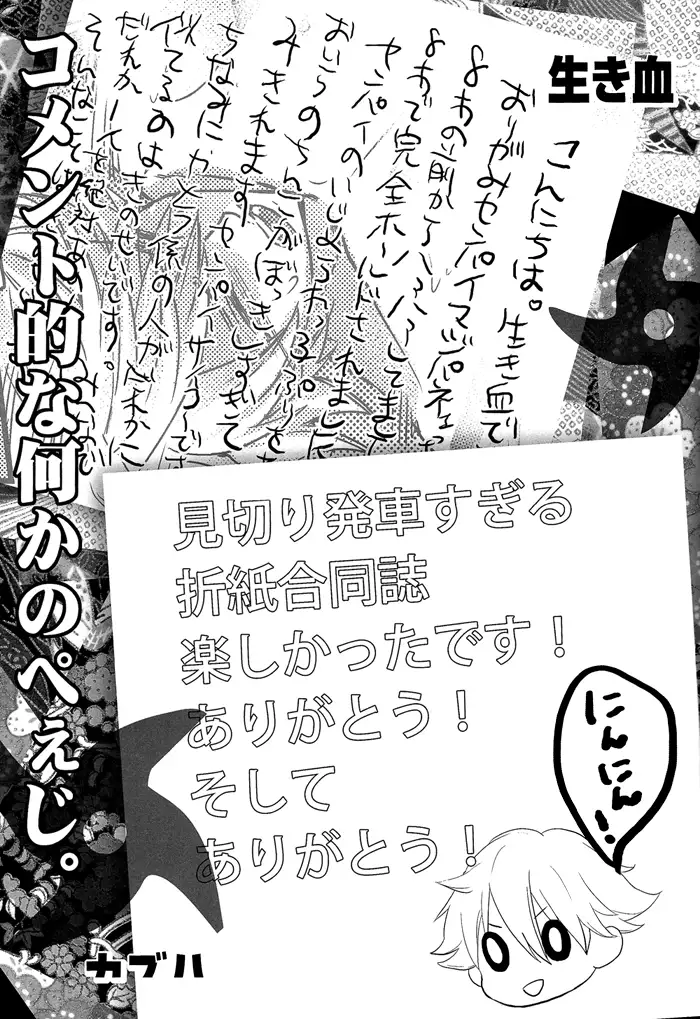 コメント的な何かのぺぇじ。
生き血
こんにちは。生き血で
おりがみセンパイマジパネェっ
8わの前からハァハァしてまし
8わで完全ホールドされました
センパイのいじめられっ子ぷりを
おいらのちんこがぼっきしすぎて
みきれます センパイサイコーです
ちなみにかとう係の人がだれかに
似てるのはきのせいです。
だれか
そんなことは絶対
見切り発車すぎる
折紙合同誌
楽しかったです！
ありがとう！
そして
ありがとう！
にんにん！
カブハ